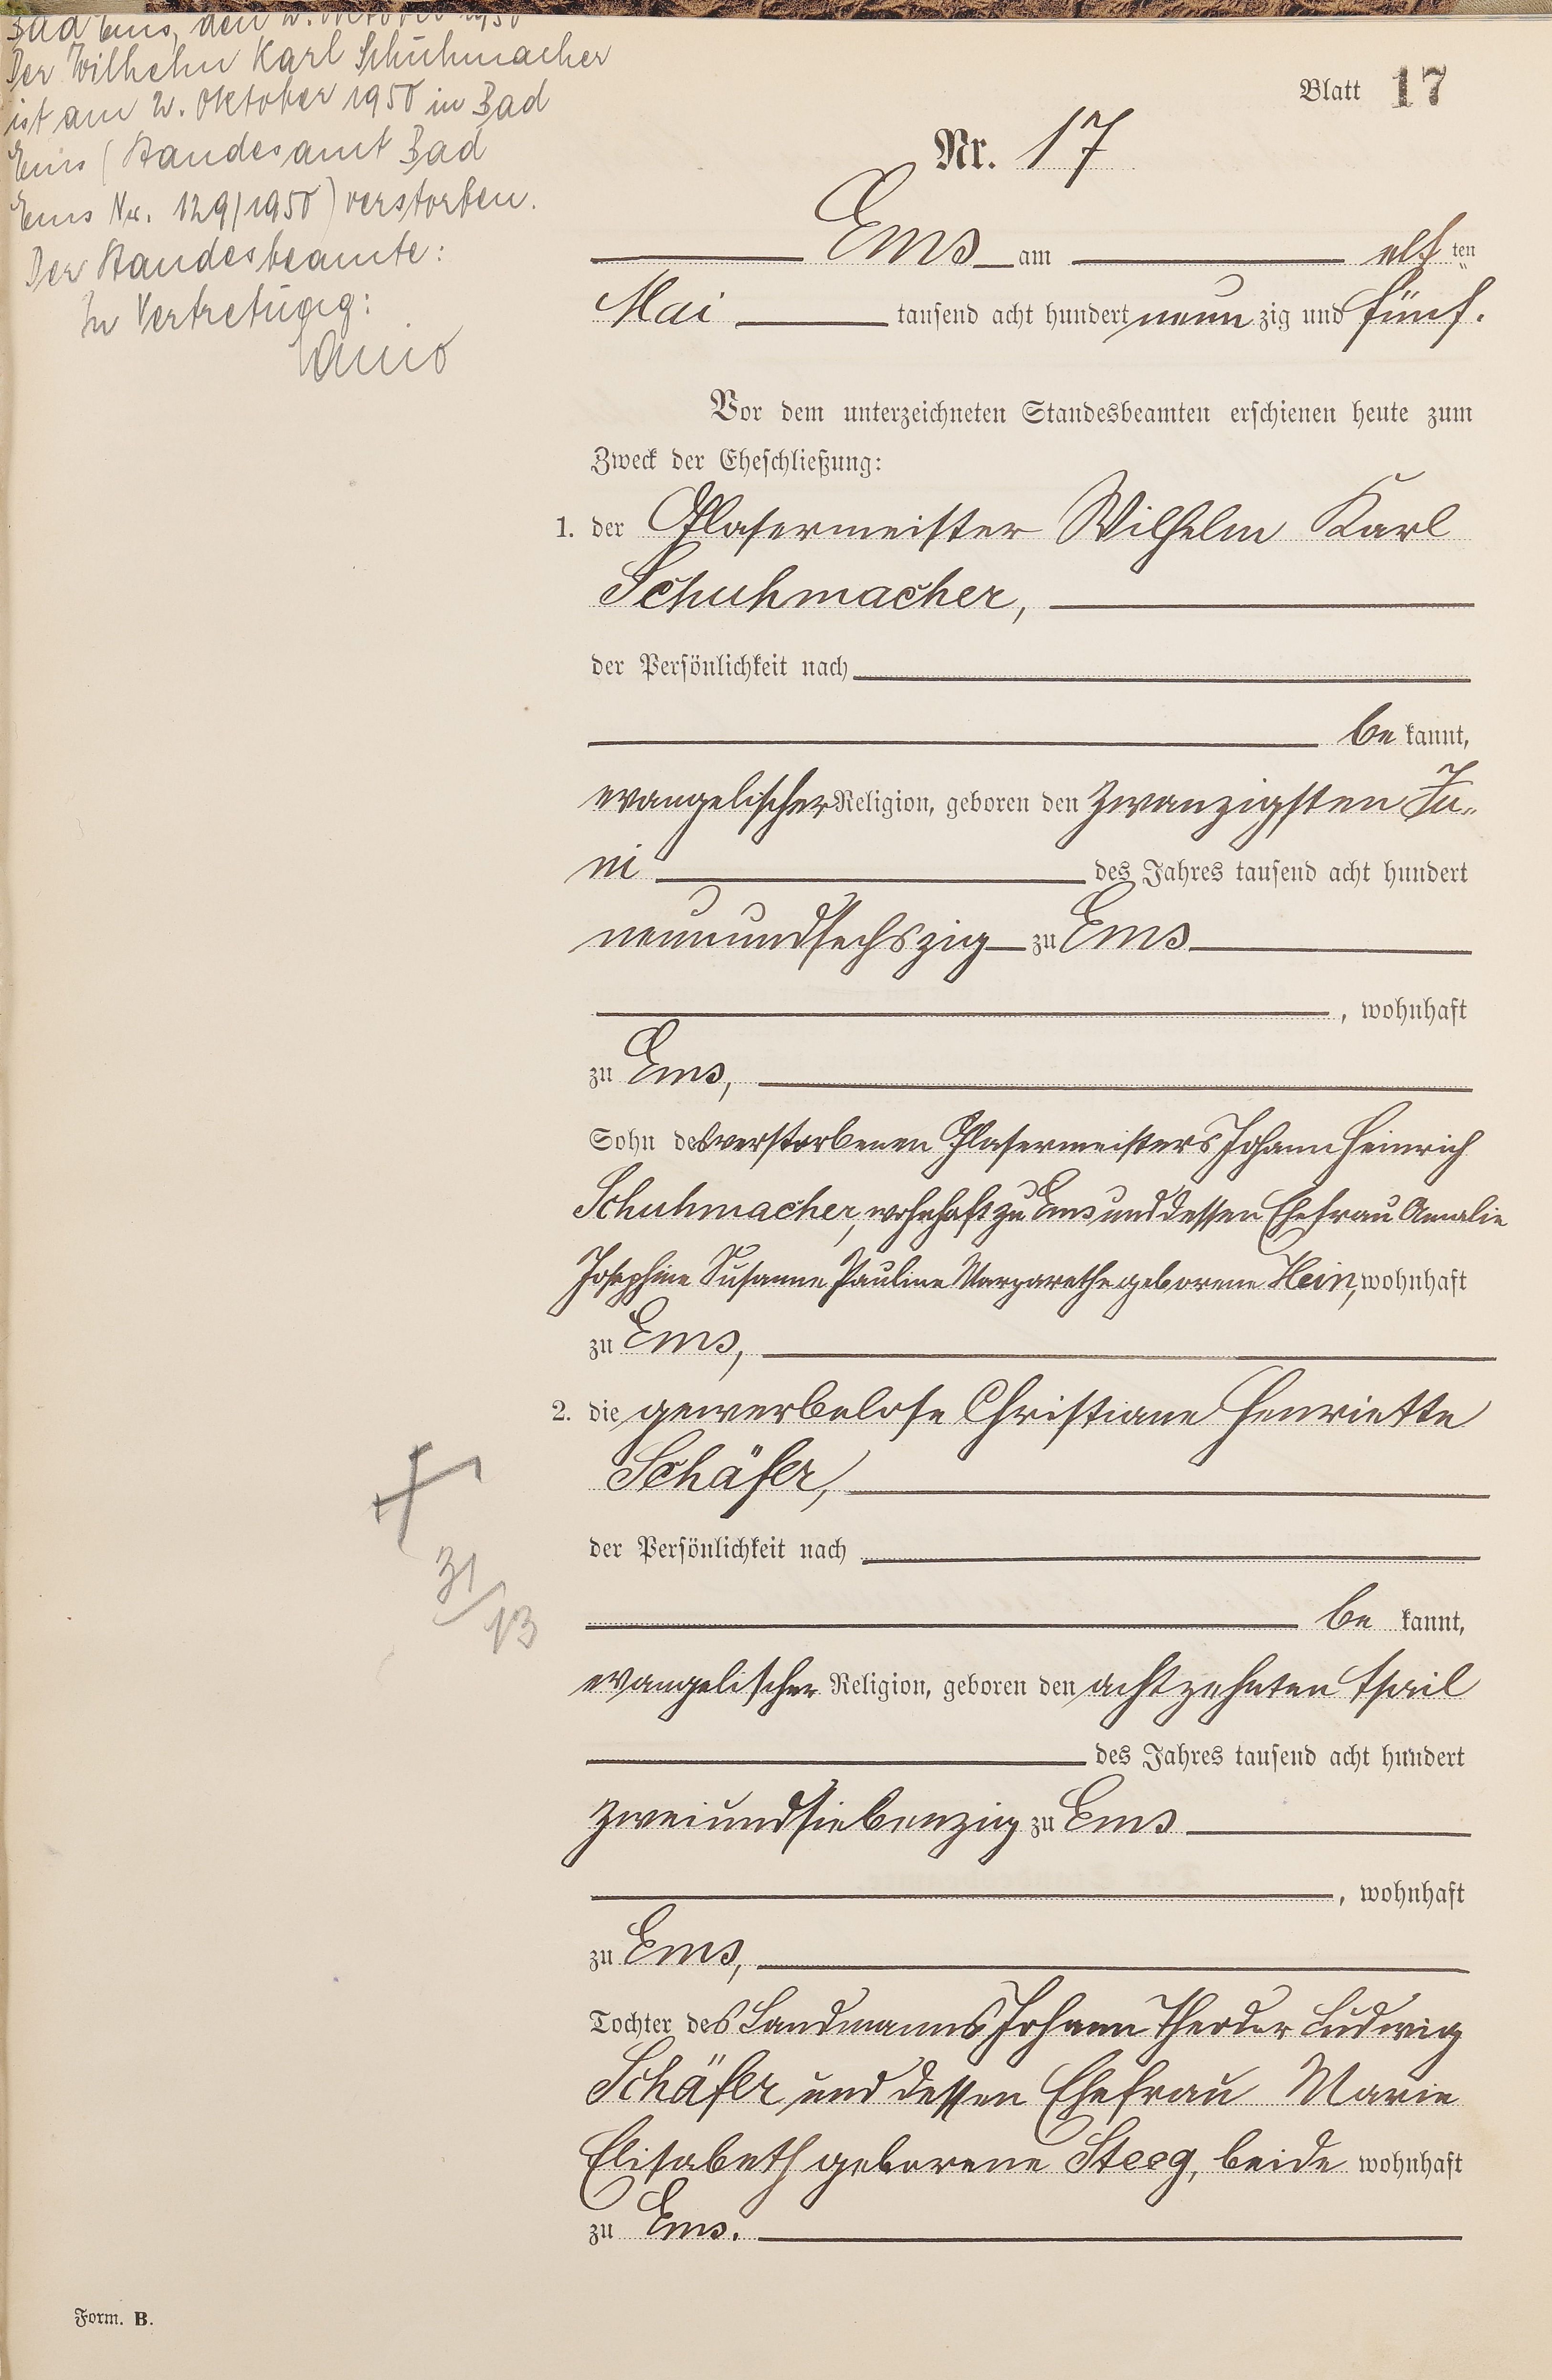 Bad Ems, den 2. Oktober 1950
Der Wilhelm Karl Schuhmacher
ist am 2. Oktober 1950 in Bad
Ems (Standesamt Bad
Ems Nr. 129/1950) verstorben.
Der Standesbeamte:
In Vertretung:
Blatt 17
Nr. 17
Ems am elften
Mai tausend acht hundert neunzig und fünf.
Vor dem unterzeichneten Standesbeamten erschienen heute zum
Zweck der Eheschließung:
1. der Glasermeister Wilhelm Karl
Schuhmacher,
der Persönlichkeit nach
bekannt,
evangelischer Religion, geboren den zwanzigsten Ju-
ni des Jahres tausend acht hundert
neunundsechszig zu Ems
, wohnhaft
zu Ems,
Sohn des verstorbenen Glasermeisters Johann Heinrich
Schuhmacher, wohnhaft zu Ems und dessen Ehefrau Amalie
Josephine Susanne Pauline Margarethe geborene Hein, wohnhaft
zu Ems,
2. die gewerbelose Christiane Henriette
Schäfer,
der Persönlichkeit nach
31/13
bekannt,
evangelischer Religion, geboren den achtzehnten April
des Jahres tausend acht hundert
zweiundsiebenzig zu Ems
, wohnhaft
zu Ems,
Tochter des Landmanns Johann Theodor Ludwig
Schäfer und dessen Ehefrau Marie
Elisabeth geborene Steeg, beide wohnhaft
zu Ems.
Form. B.